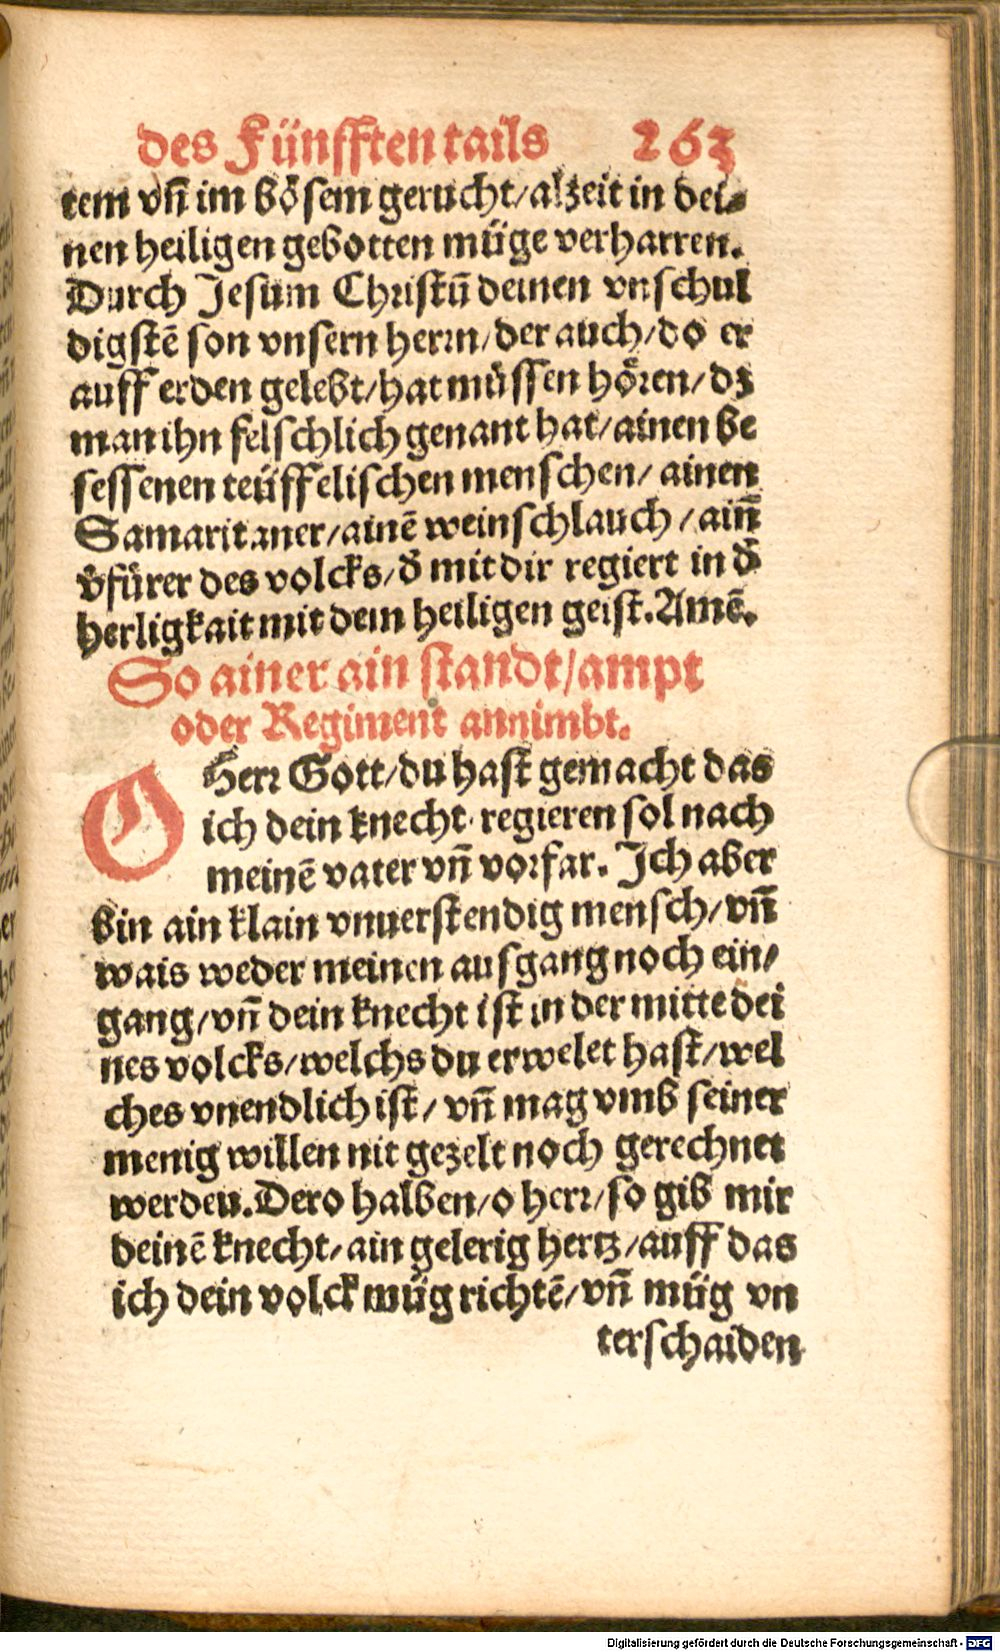 des Fünfften tails 263
tem vñ im bösem gerucht/ alzeit in dei⸗
nen heiligen gebotten müge verharren.
Durch Jesum Christū deinen vnschul
digstē son vnsern herrn/ der auch/ do er
auff erden gelebt/ hat müssen hören/ dz
man ihn felschlich genant hat/ ainen be
sessenen teüffelischen menschen/ ainen
Samaritaner/ ainē weinschlauch/ ainñ
v̄fürer des volcks/ d̄ mit dir regiert in d̄
herligkait mit dem heiligen geist. Amē.
So ainer ain standt/ ampt
oder Regiment annimbt.
O Herr Gott/ du hast gemacht das
ich dein knecht regieren sol nach
meinē vater vñ vorfar. Ich aber
bin ain klain vnuerstendig mensch/ vñ
wais weder meinen ausgang noch ein/
gang/ vñ dein knecht ist in der mitte dei
nes volcks/ welchs du erwelet hast/ wel
ches vnendlich ist/ vñ mag vmb seiner
menig willen nit gezelt noch gerechnet
werden. Dero halben/ o herr/ so gib mir
deinē knecht/ ain gelerig hertz/ auff das
ich dein volck müg richtē/ vñ müg vn
terschaiden
Digitalisierung gefördert durch die Deutsche Forschungsgemeinschaft - DFG